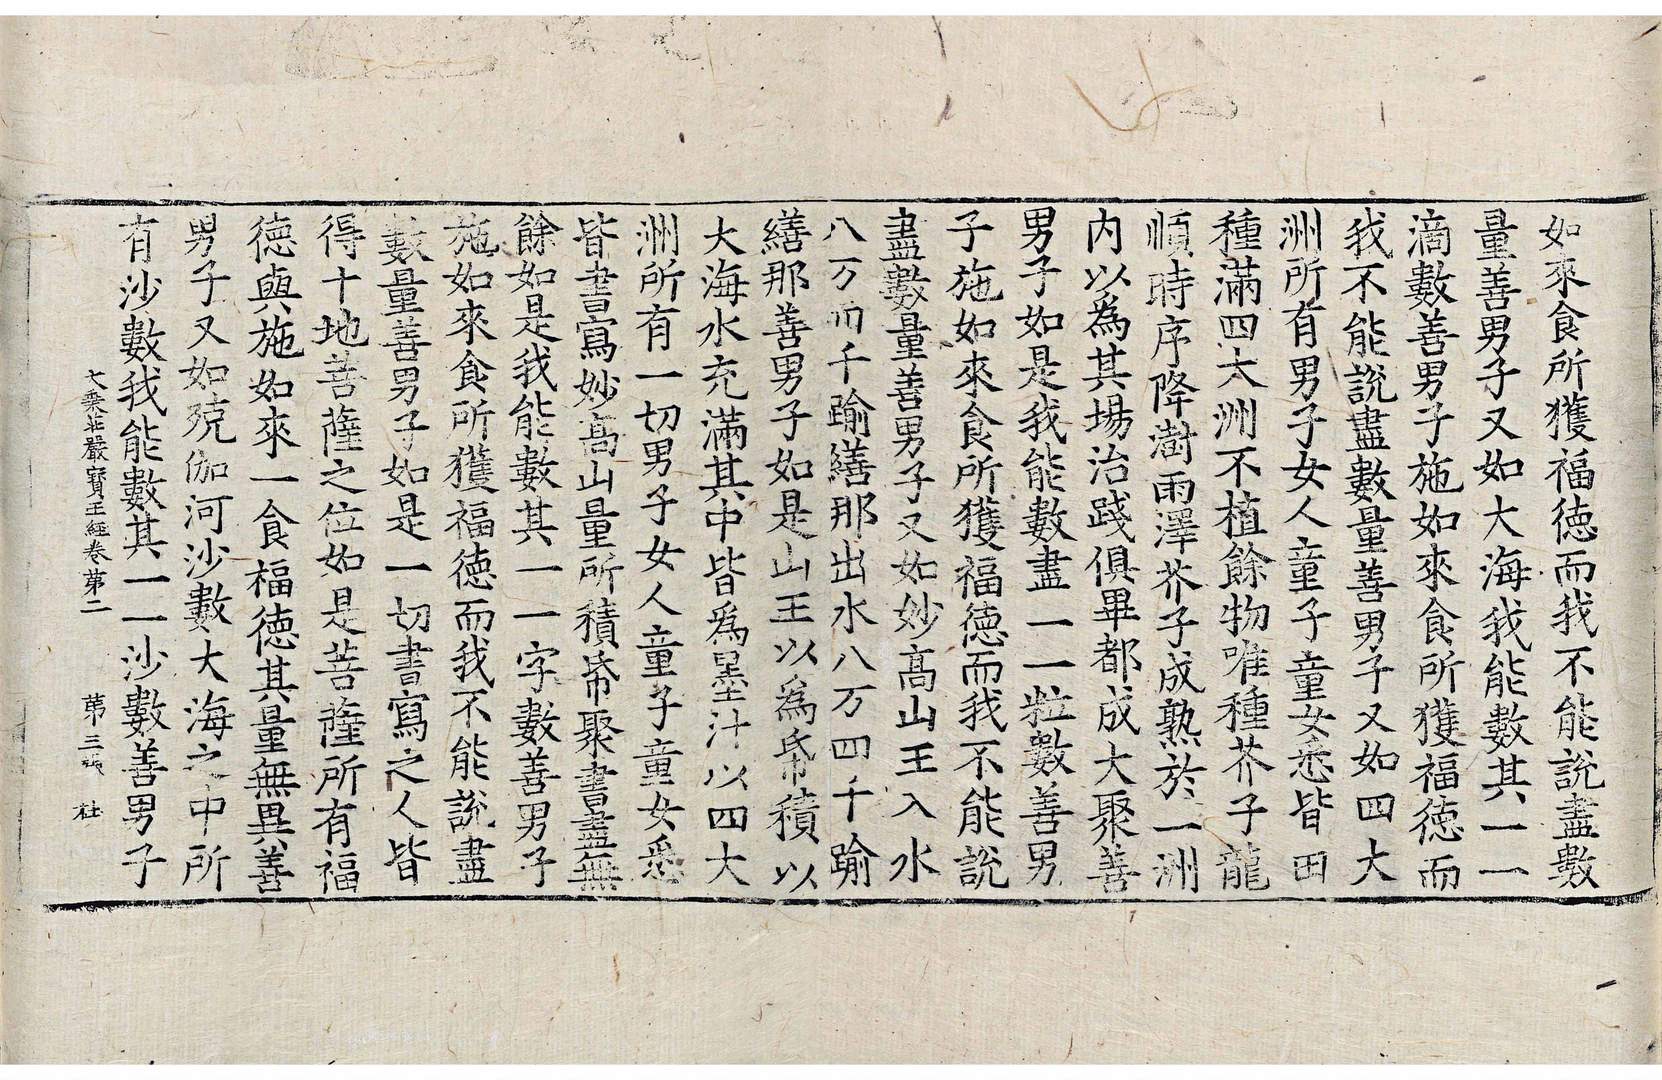 如來食所獲福德而我不能說盡數
量善男子又如大海我能數其一一
滴數善男子施如來食所獲福德而
我不能說盡數量善男子又如四大
洲所有男子女人童子童女悉皆田
種滿四大洲不植餘物唯種芥子龍
順時序降澍雨澤芥子成熟於一洲
内以爲其場治踐俱畢都成大聚善
男子如是我能數盡一一粒數善男
子施如來食所獲福德而我不能說
盡數量善男子又如妙高山王入水
八万四千踰繕那出水八万四千踰
繕那善男子如是山王以爲帋積以
大海水充滿其中皆爲墨汁以四大
洲所有一切男子女人童子童女悉
皆書寫妙高山量所積帋聚書盡無
餘如是我能數其一一字數善男子
施如來食所獲福德而我不能說盡
數量善男子如是一切書寫之人皆
得十地菩薩之位如是菩薩所有福
德與施如來一食福德其量無異善
男子又如殑伽河沙數大海之中所
有沙數我能數其一一沙數善男子
大乘莊嚴寶王經卷第二　第三張　社